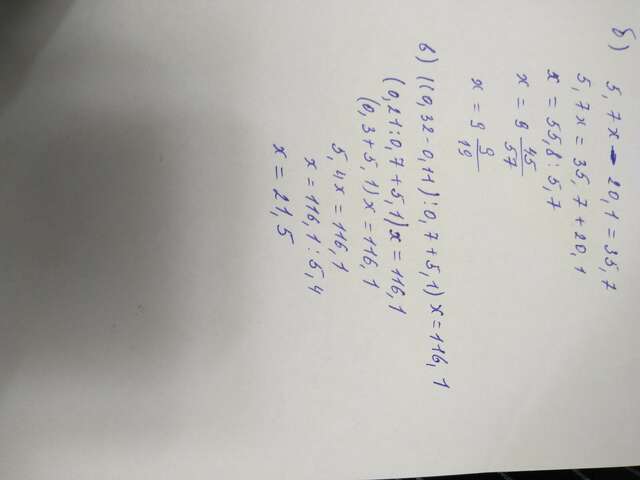 б) 5,7x - 20,1 = 35,7
5,7x = 35,7 + 20,1
x = 55,8 : 5,7
x = 9 45/57
x = 9 9/19
в) ((0,32 - 0,11) : 0,7 + 5,1) x = 116,1
(0,21 : 0,7 + 5,1) x = 116,1
(0,3 + 5,1) x = 116,1
5,4x = 116,1
x = 116,1 : 5,4
x = 21,5